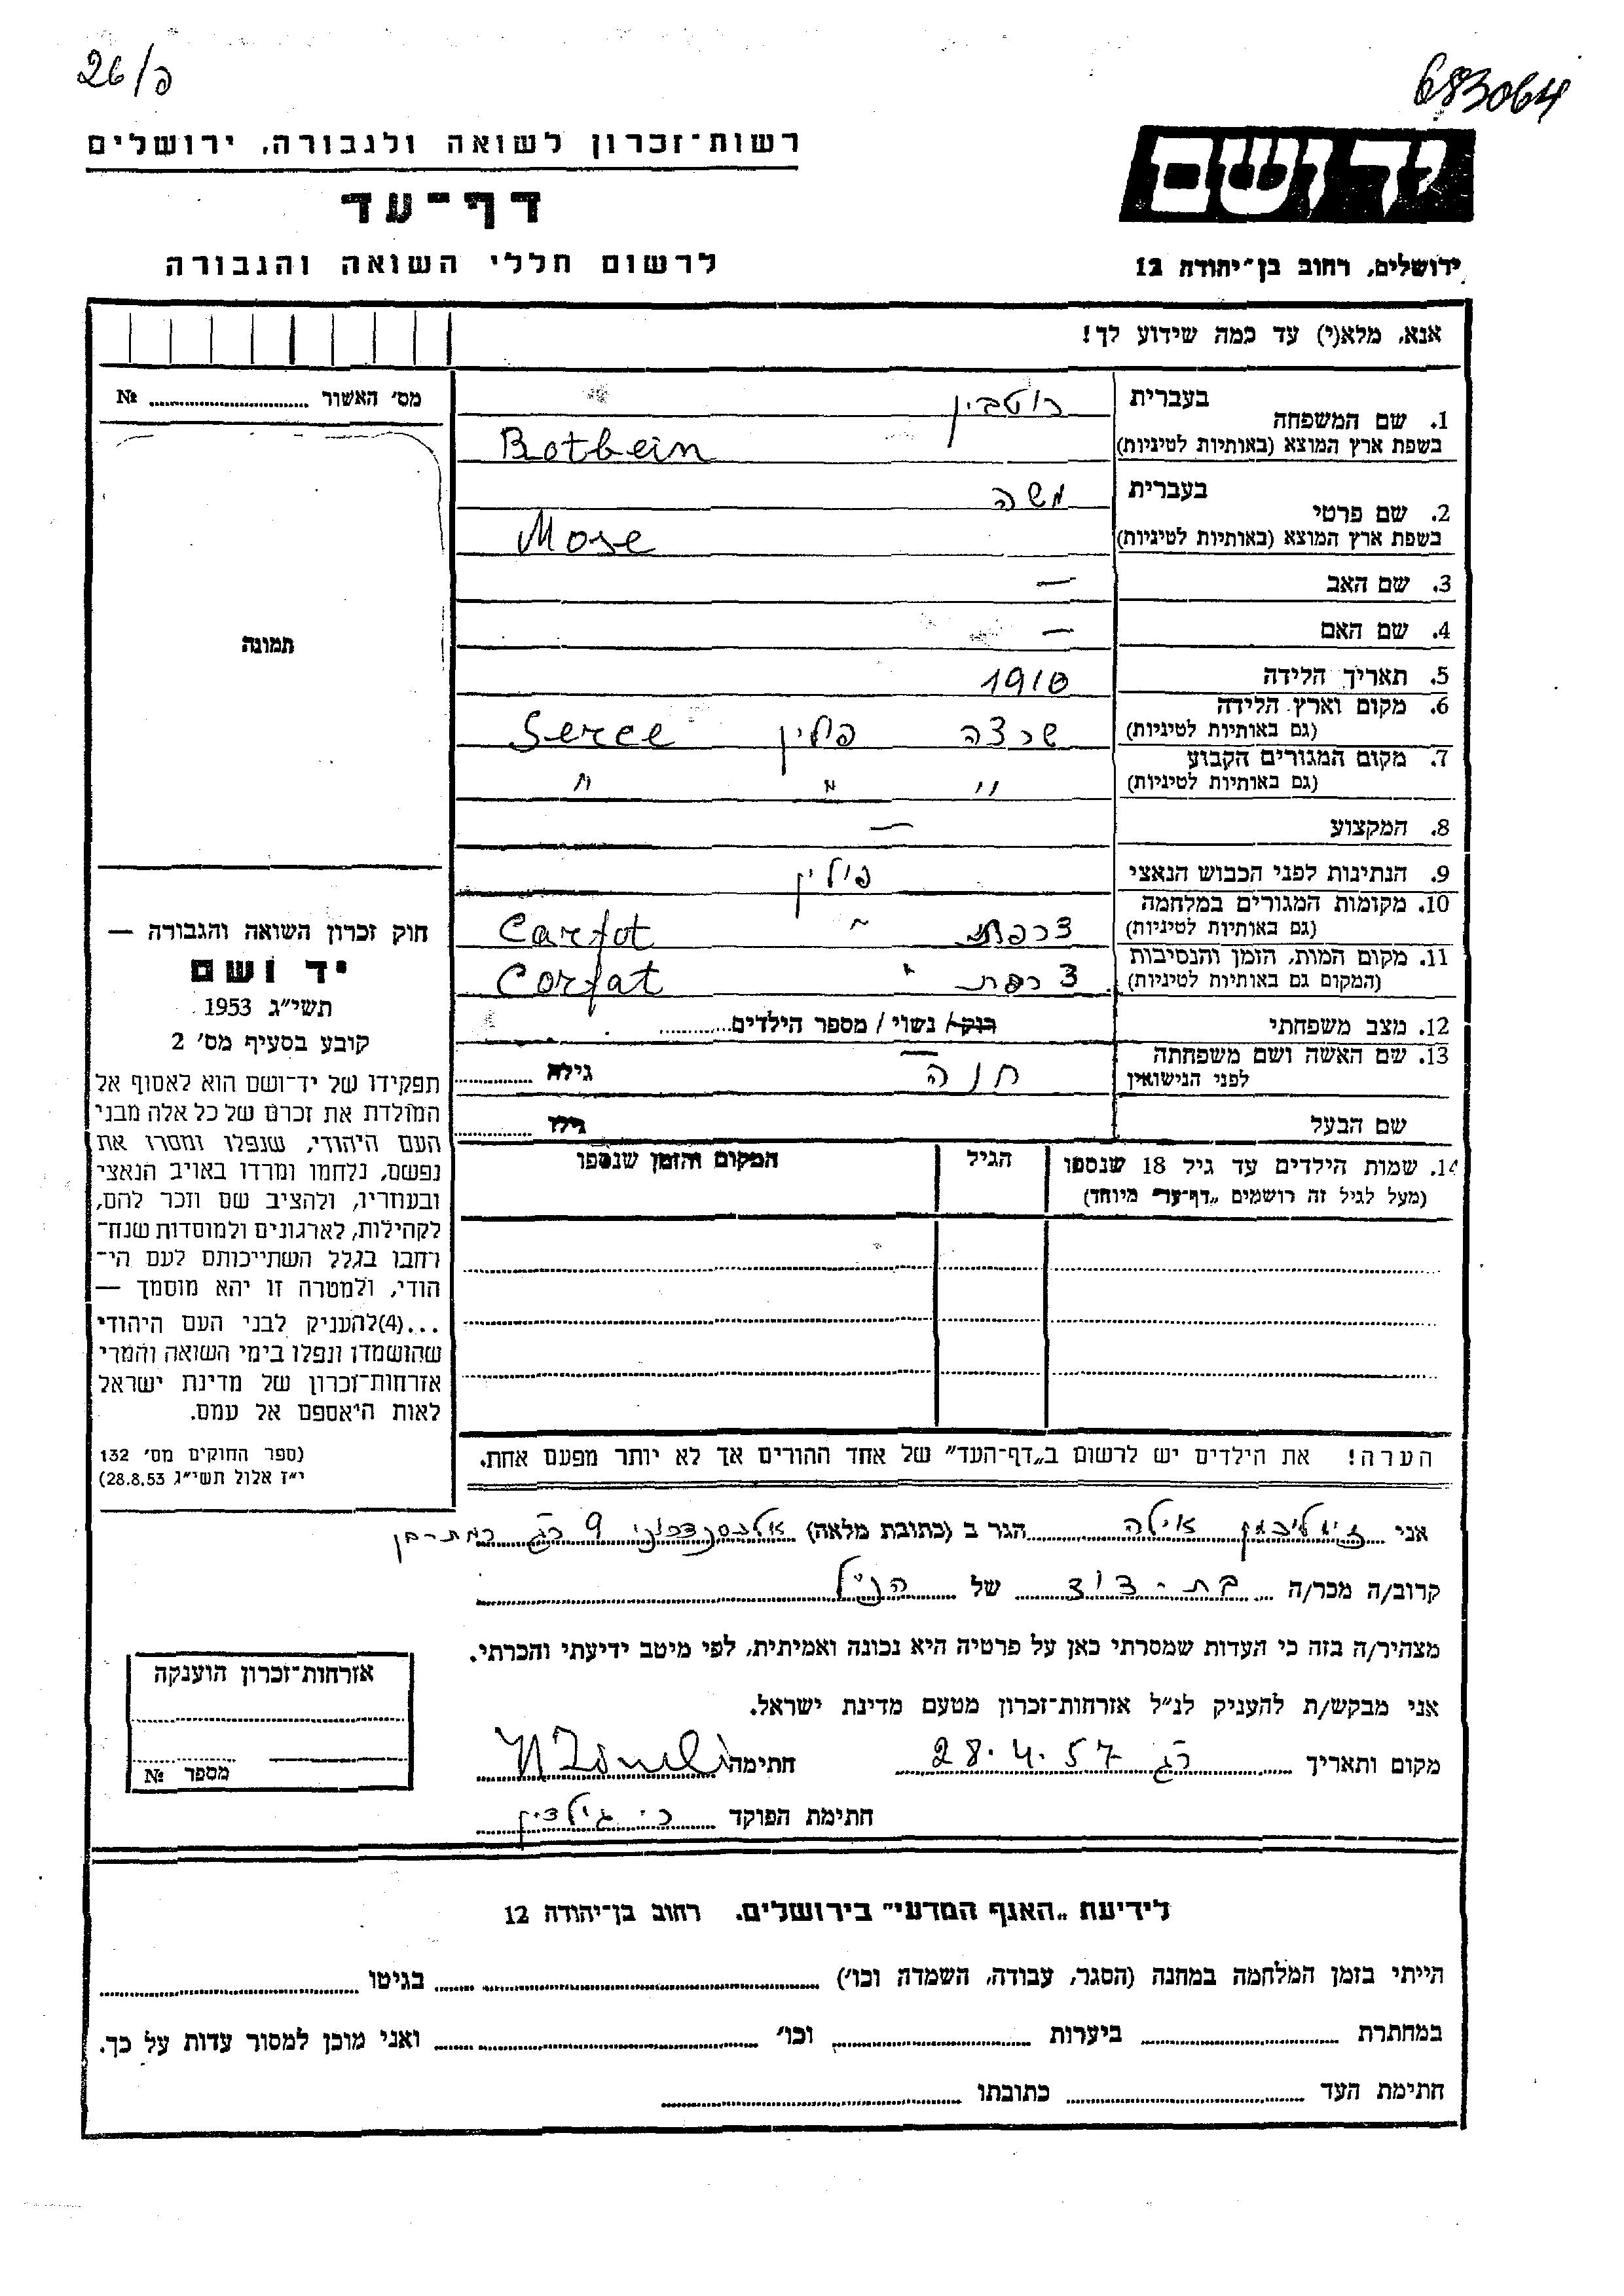 26/פ
683064
רשות־זכרון לשואה ולגבורה, ירושלים
יד ושם
דף־עד
לרשום חללי השואה והגבורה
ירושלים, רחוב בן־יהודה 12
אנא, מלא(י) עד כמה שידוע לך!
מס׳ האשור № 
תמונה
חוק זכרון השואה והגבורה —
יד ושם
תשי״ג 1953
קובע בסעיף מס׳ 2
תפקידו של יד־ושם הוא לאסוף אל
המולדת את זכרם של כל אלה מבני
העם היהודי, שנפלו ומסרו את
נפשם, נלחמו ומרדו באויב הנאצי
ובעוזריו, ולהציב שם וזכר להם,
לקהילות, לארגונים ולמוסדות שנח־
רבו בגלל השתייכותם לעם הי־
הודי, ולמטרה זו יהא מוסמך —
...(4)להעניק לבני העם היהודי
שהושמדו ונפלו בימי השואה והמרי
אזרחות־זכרון של מדינת ישראל
לאות היאספם אל עמם.
(ספר החוקים מס׳ 132
י״ז אלול תשי״ג 28.8.53)
בעברית רוטבין
1. שם המשפחה
בשפת ארץ המוצא (באותיות לטיניות) Rotbein
בעברית משה
2. שם פרטי
בשפת ארץ המוצא (באותיות לטיניות) Mose
3. שם האב —
4. שם האם —
5. תאריך הלידה 1910
6. מקום וארץ הלידה
(גם באותיות לטיניות) שרצה פולין Serce
7. מקום המגורים הקבוע
(גם באותיות לטיניות) " " "
8. המקצוע —
9. הנתינות לפני הכבוש הנאצי פולין
10. מקומות המגורים במלחמה
(גם באותיות לטיניות) צרפת " Carfot
11. מקום המות, הזמן והנסיבות
(המקום גם באותיות לטיניות) צרפת " Corfat
12. מצב משפחתי רוק/ נשוי / מספר הילדים
13. שם האשה ושם משפחתה
לפני הנישואין חנה גילה
שם הבעל גילו
14. שמות הילדים עד גיל 18 שנספו הגיל המקום והזמן שנספו
(מעל לגיל זה רושמים „דף־עד״ מיוחד)
הערה! את הילדים יש לרשום ב„דף־העד״ של אחד ההורים אך לא יותר מפעם אחת.
אני אילה הגר ב (כתובת מלאה) 9 רג רמת-גן
קרוב/ה מכר/ה בת-דוד של הנ״ל
מצהיר/ה בזה כי העדות שמסרתי כאן על פרטיה היא נכונה ואמיתית, לפי מיטב ידיעתי והכרתי.
אני מבקש/ת להעניק לנ״ל אזרחות־זכרון מטעם מדינת ישראל.
מקום ותאריך רג 28.4.57 חתימה
חתימת הפוקד
אזרחות־זכרון הוענקה
מספר №
לידיעת „האגף המדעי״ בירושלים. רחוב בן־יהודה 12
הייתי בזמן המלחמה במחנה (הסגר, עבודה, השמדה וכו׳) בגיטו
במחתרת ביערות וכו׳ ואני מוכן למסור עדות על כך.
חתימת העד כתובתו